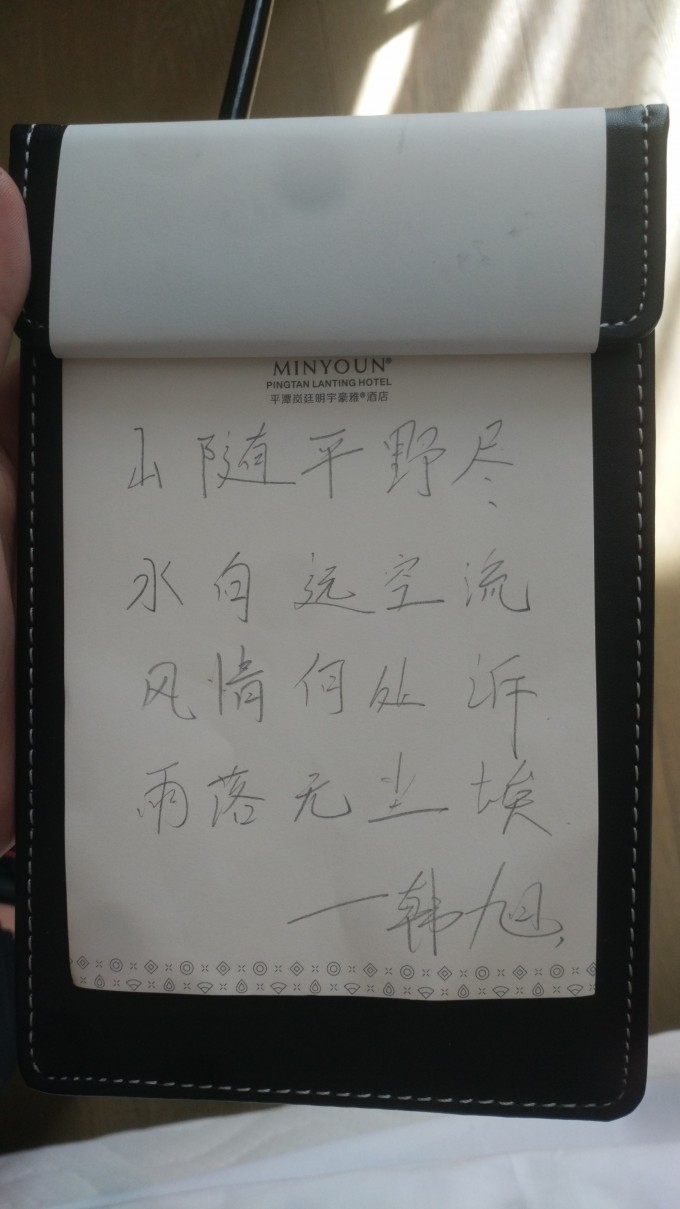 MINYOUN®
PINGTAN LANTING HOTEL
平潭岚廷明宇豪雅®酒店
山随平野尽
水向远空流
风情何处诉
雨落无尘埃
一韩旭